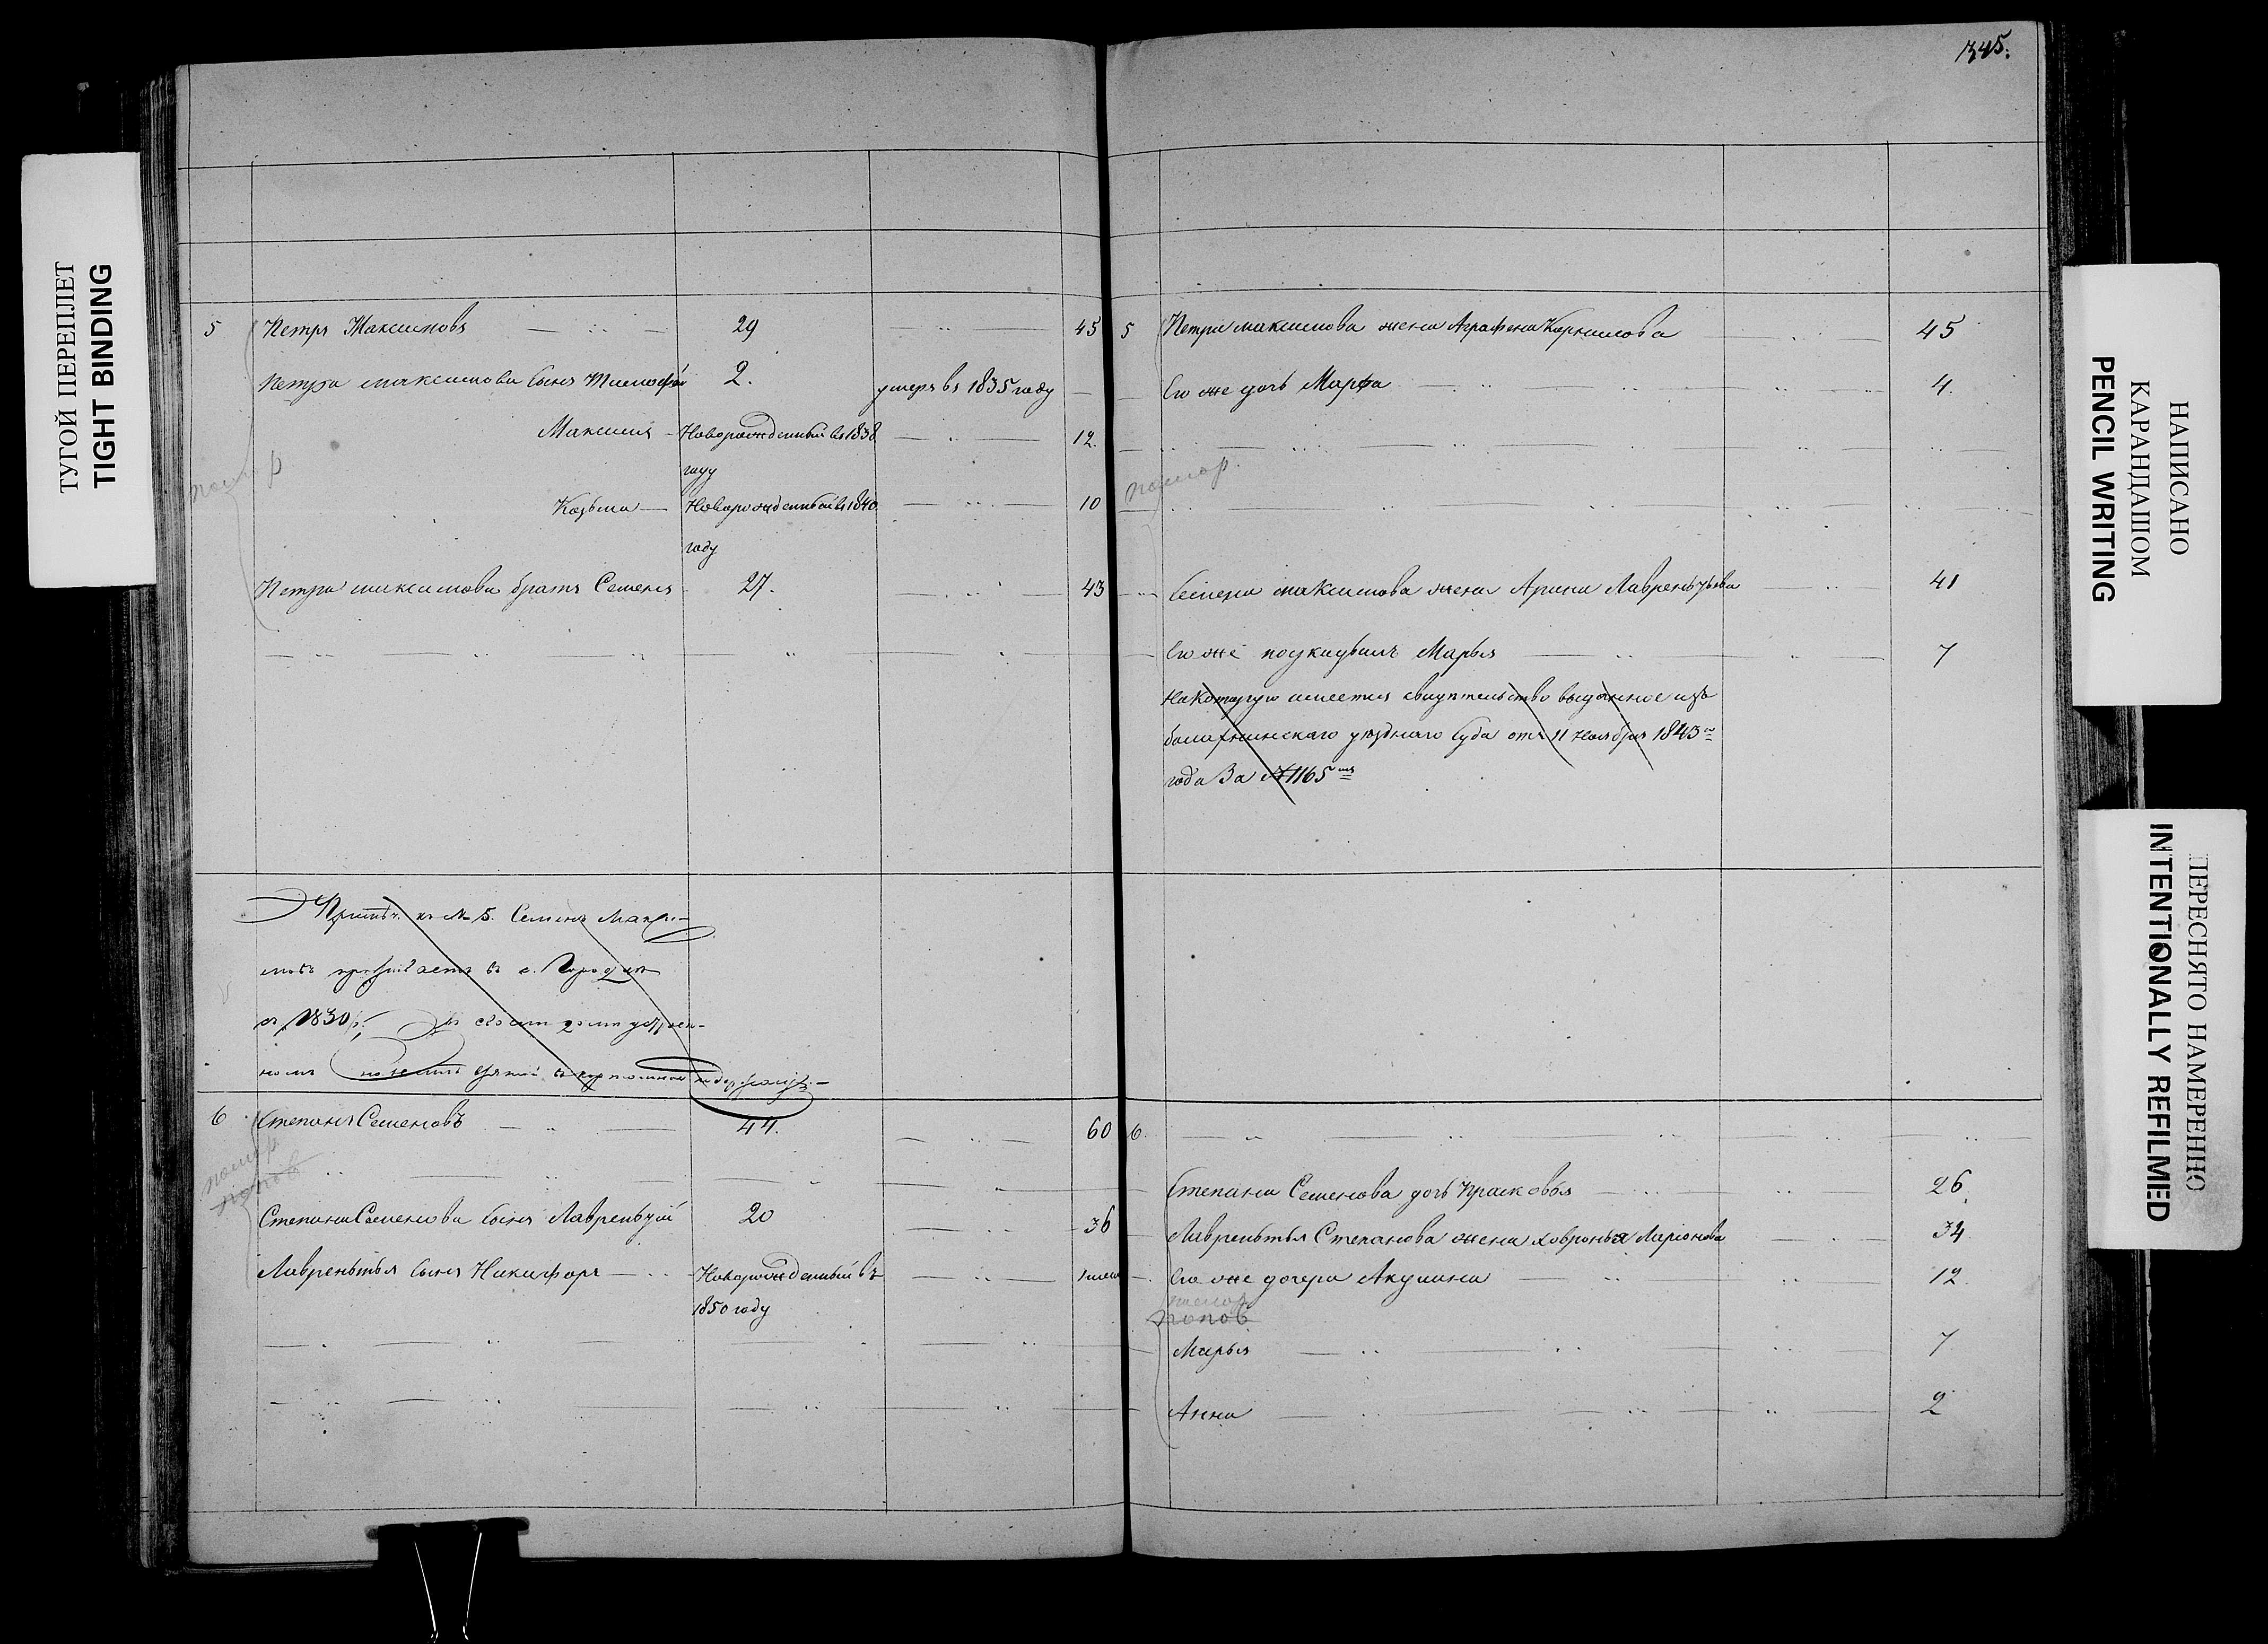 345.
5 Петръ Максимовъ 29 45
Петра максимова сынъ Тимофей 2. умеръ въ 1835 году
Максимъ Новорожденный въ 1838 12.
году
Козьма Новорожденный въ 1840 10
году
Петра максимова братъ Семенъ 27. 43
Примѣч. къ № 5. Семенъ Макси-
мовъ проживаетъ въ с. Городцѣ
съ 1830 въ своемъ домѣ устроен-
номъ на землѣ
6 Степанъ Семеновъ 44. 60
помор
попов
Степана Семенова сынъ Лаврентій 20 36
Лаврентья сынъ Никифоръ Новорожденный въ
1850 году
5 Петра максимова жена Аграфена Корнилова 45
Его же дочь Марфа 4.
помор.
Семена максимова жена Арина Лаврентьева 41
Его же подкидышъ Марья 7
На которую имеется свидѣтельство выданное изъ
балахнинскаго уѣзднаго Суда отъ 11 Ноября 1843го
года За № 1165мъ
6.
Степана Семенова дочь Прасковья 26
Лаврентья Степанова жена Ховронья Ларіонова 34
Его же дочери Акулина 12.
помор
попов
Марья 7
Анна 2
ТУГОЙ ПЕРЕПЛЕТ
TIGHT BINDING
НАПИСАНО
КАРАНДАШОМ
PENCIL WRITING
ПЕРЕСНЯТО НАМЕРЕННО
INTENTIONALLY REFILMED